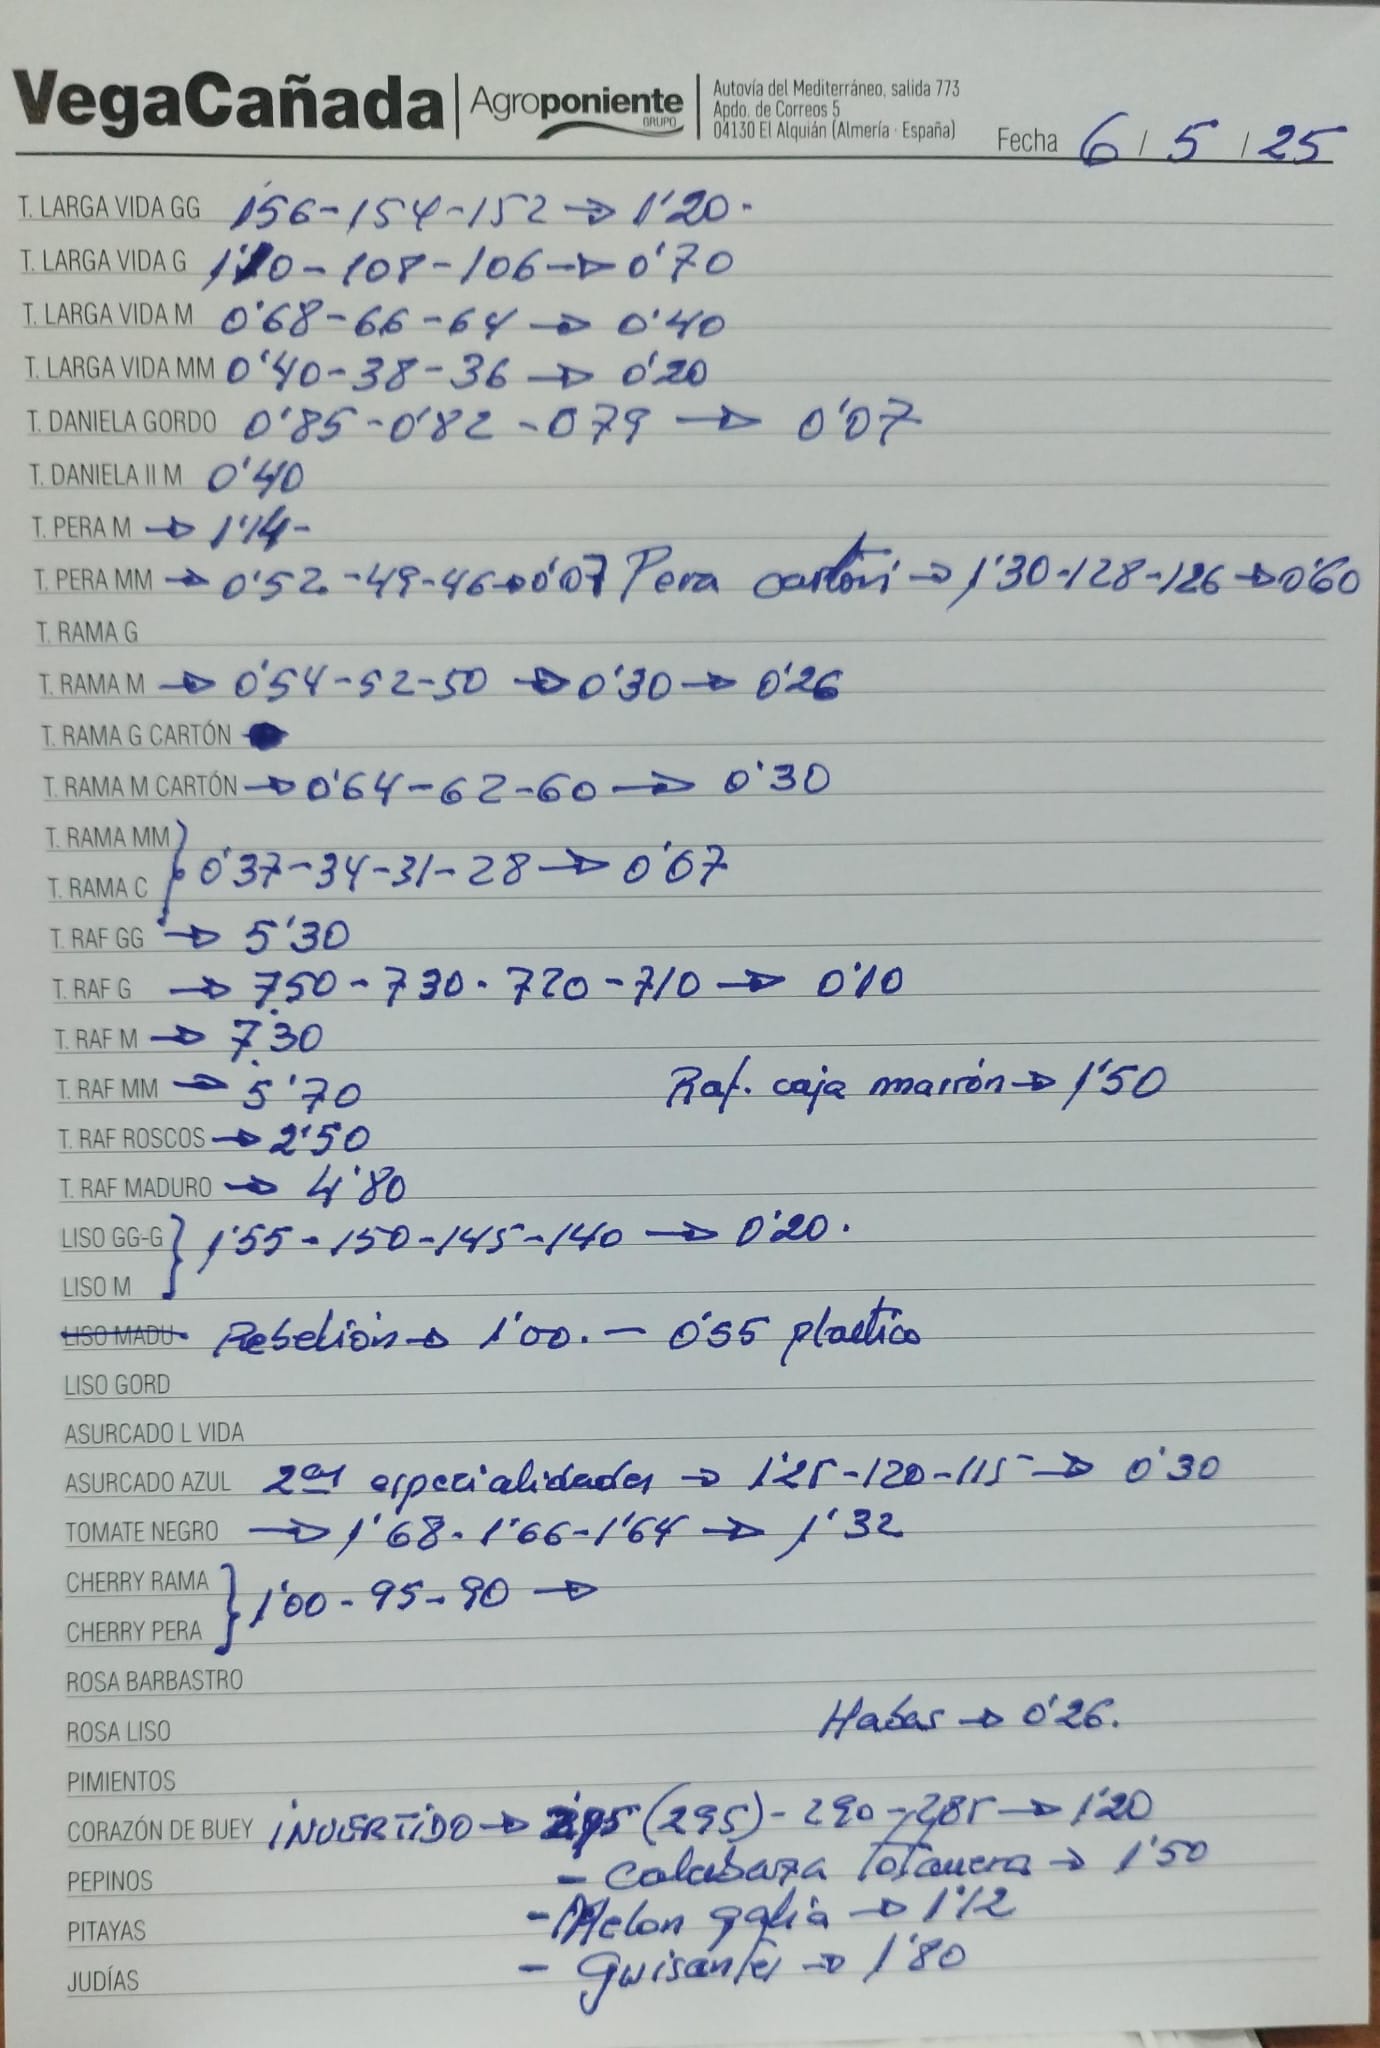 VegaCañada Agroponiente GRUPO
Autovía del Mediterráneo, salida 773
Apdo. de Correos 5
04130 El Alquián (Almería · España)
Fecha 6 / 5 / 25
T. LARGA VIDA GG 156-154-152 → 1'20.
T. LARGA VIDA G 1'10-108-106 → 0'70
T. LARGA VIDA M 0'68-66-64 → 0'40
T. LARGA VIDA MM 0'40-38-36 → 0'20
T. DANIELA GORDO 0'85-0'82-079 → 0'07
T. DANIELA II M 0'40
T. PERA M → 1'14-
T. PERA MM → 0'52-49-46→0'07 Pera cartón → 1'30-128-126 → 0'60
T. RAMA G
T. RAMA M → 0'54-52-50 → 0'30 → 0'26
T. RAMA G CARTÓN
T. RAMA M CARTÓN → 0'64-62-60 → 0'30
T. RAMA MM
T. RAMA C } 0'37-34-31-28 → 0'07
T. RAF GG → 5'30
T. RAF G → 7.50-730-720-710 → 0'10
T. RAF M → 7.30
T. RAF MM → 5'70 Raf. caja marrón → 1'50
T. RAF ROSCOS → 2'50
T. RAF MADURO → 4'80
LISO GG-G } 1'55-150-145-140 → 0'20.
LISO M
LISO MADU Rebelión → 1'00.- 0'55 plastico
LISO GORD
ASURCADO L VIDA
ASURCADO AZUL 2as especialidades → 1'25-120-115 → 0'30
TOMATE NEGRO → 1'68-1'66-1'64 → 1'32
CHERRY RAMA } 1'00-95-90 →
CHERRY PERA
ROSA BARBASTRO
ROSA LISO Habas → 0'26.
PIMIENTOS
CORAZÓN DE BUEY INVERTIDO → (295)-290-285 → 1'20
PEPINOS - Calabaza Totanera → 1'50
PITAYAS - Melon galia → 1'12
JUDÍAS - Guisantes → 1'80